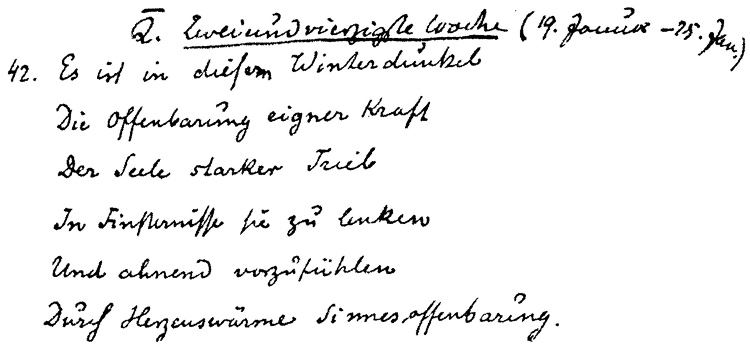 Q̅. Zweiundvierzigste Woche (19. Januar – 25. Jan.)
42. Es ist in diesem Winterdunkel
Die Offenbarung eigner Kraft
Der Seele starker Trieb
In Finsternisse sie zu lenken
Und ahnend vorzufühlen
Durch Herzenswärme Sinnesoffenbarung.